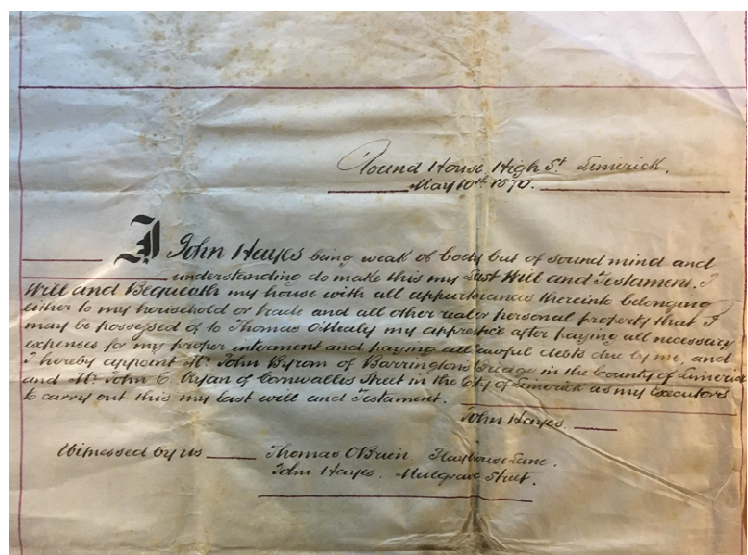 Round House High St. Limerick.
May 10th 1870.
I John Hayes being weak of body but of sound mind and
understanding do make this my Last Will and Testament. I
Will and Bequeath my house with all appurtenances therein belonging
either to my household or trade and all other personal property that I
may be possessed of to Thomas my apprentice after paying all necessary
expenses for my proper interment and paying all lawful debts due by me, and
I hereby appoint Mr. John Byrom of Barringtons Bridge in the County of Limerick
and Mr. John C. Ryan of Cornwallis Street in the City of Limerick as my Executors
to carry out this my last will and Testament.
John Hayes.
Witnessed by us Thomas O'Brien Lane.
John Hayes. Mulgrave Street.